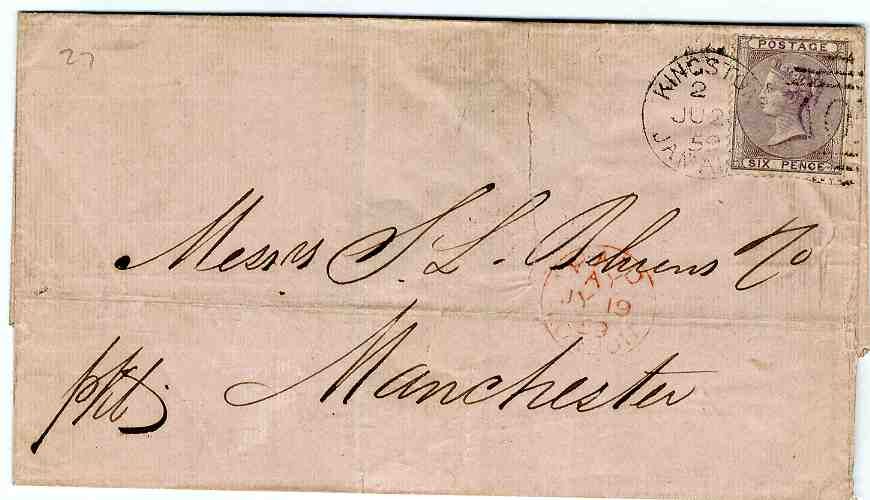 27
POSTAGE
SIX PENCE
KINGSTO
2
JU 2
59
JAMAI
Messrs S. L. Behrens & Co
AY
JY 19
59
Manchester
pkt